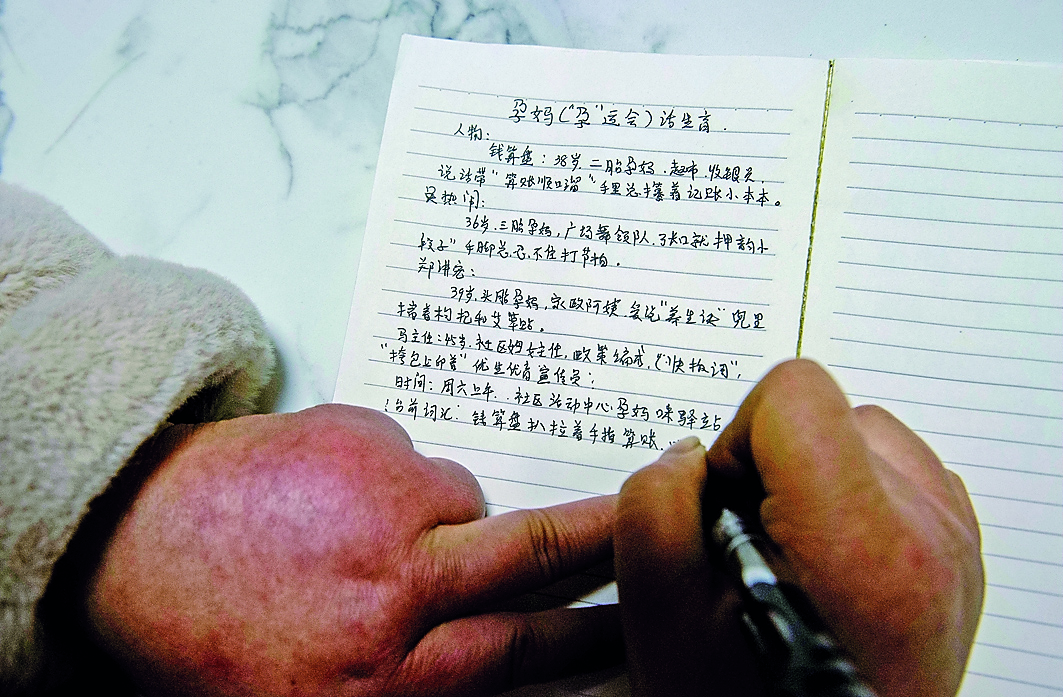 孕妈（“孕”运会）话生育.
人物:
钱算盘：38岁.二胎孕妈.超市.收银员.
说话带“算账顺口溜”手里总攥着记账小本本。
吴热闹:
36岁.三胎孕妈,广场舞领队.张口就押韵小
段子”手脚总忍不住打节拍.
郑讲究:
39岁.头胎孕妈,家政阿姨.爱说“养生诀”兜里
揣着枸杞和艾草贴。
马主任:45岁.社区妇女主任,政策编成(“快板词”,
“挎包上印着”优生优育宣传员;
时间：周六上午..社区活动中心孕妈咪驿站
台前词汇:钱算盘扒拉着手指算账...